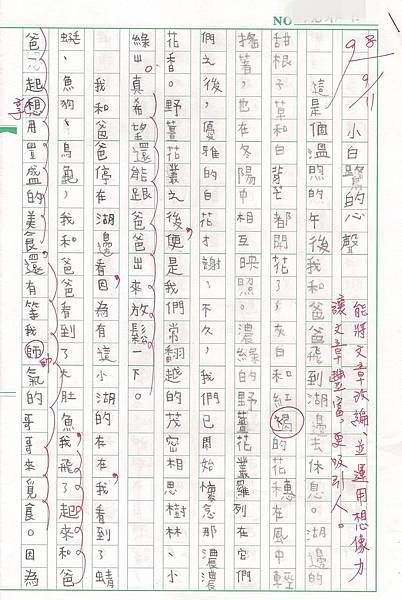 NO
98 9/11
小白鷺的心聲
能將文章改編、並運用想像力
讓文章豐富,更吸引人。
這是個溫煦的午後我和爸爸飛到湖邊去休息。湖邊的
甜根子草和白背芒都開花了,灰白和紅褐的花穗在風中輕
搖著,也在冬陽中相互映照。濃綠的野薑花叢羅列在它們
們之後,優雅的白花才謝,不久,我們已開始懷念那濃濃
花香。野薑花叢之後便是我們常翻越的茂密相思樹林、小
綠出。真希望還能跟爸爸出來放鬆一下。
我和爸爸停在湖邊看,因為有這小湖的存在,我看到了蜻
蜓、魚狗、烏龜,我和爸爸看到了大肚魚,我飛了起來和爸
爸起想用豐盛的美食,還有等我師氣的哥哥來覓食。因為
享
帥